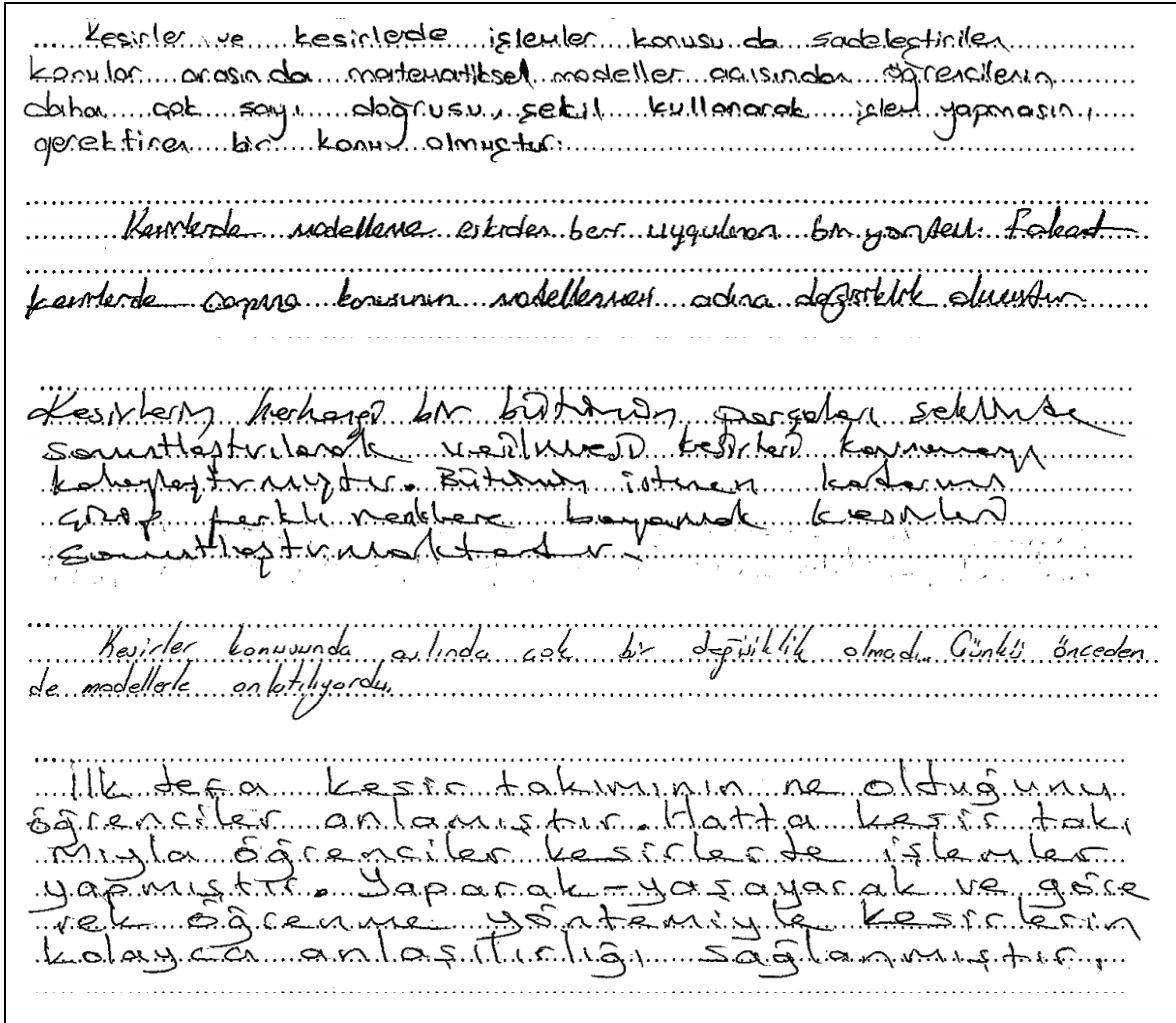 Kesirler ve kesirlerde işlemler konusu da sadeleştirilen
konular arasında matematiksel modeller açısından öğrencilerin
daha çok sayı doğrusu, şekil kullanarak işlem yapmasını
gerektiren bir konu olmuştur.
Kesirlerde modelleme eskiden beri uygulanan bir yöntem. Fakat
kesirlerde çarpma konusunun modellenmesi adına değişiklik olmuştur.
Kesirlerin herhangi bir bütünün parçaları şeklinde
somutlaştırılarak verilmesi kesirleri kavramayı
kolaylaştırmıştır. Bütünün istenen kadarını
çizip farklı renklere boyamak kesirleri
somutlaştırmaktadır.
Kesirler konusunda aslında çok bir değişiklik olmadı. Çünkü önceden
de modellerle anlatılıyordu.
İlk defa kesir takımının ne olduğunu
öğrenciler anlamıştır. Hatta kesir takı
mıyla öğrenciler kesirlerde işlemler
yapmıştır. Yaparak-yaşayarak ve göre
rek öğrenme yöntemiyle kesirlerin
kolayca anlaşılırlığı sağlanmıştır.